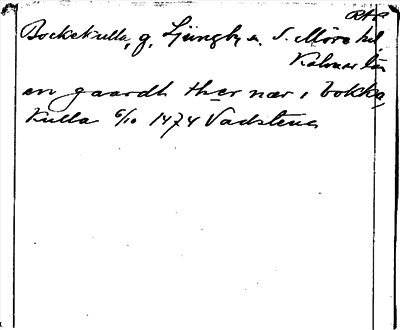 Bockekulla, g, Ljungby sn. S. Möre hd,
Kalmar län
en gaardh ther nær i bokka,
kulla 6/10 1474 Vadstena